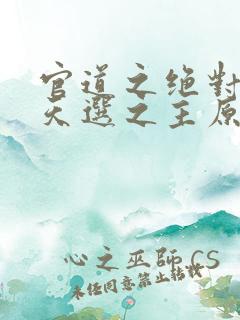 官道之绝對
天選之主原
心之巫師 CS
未经同意禁止转载